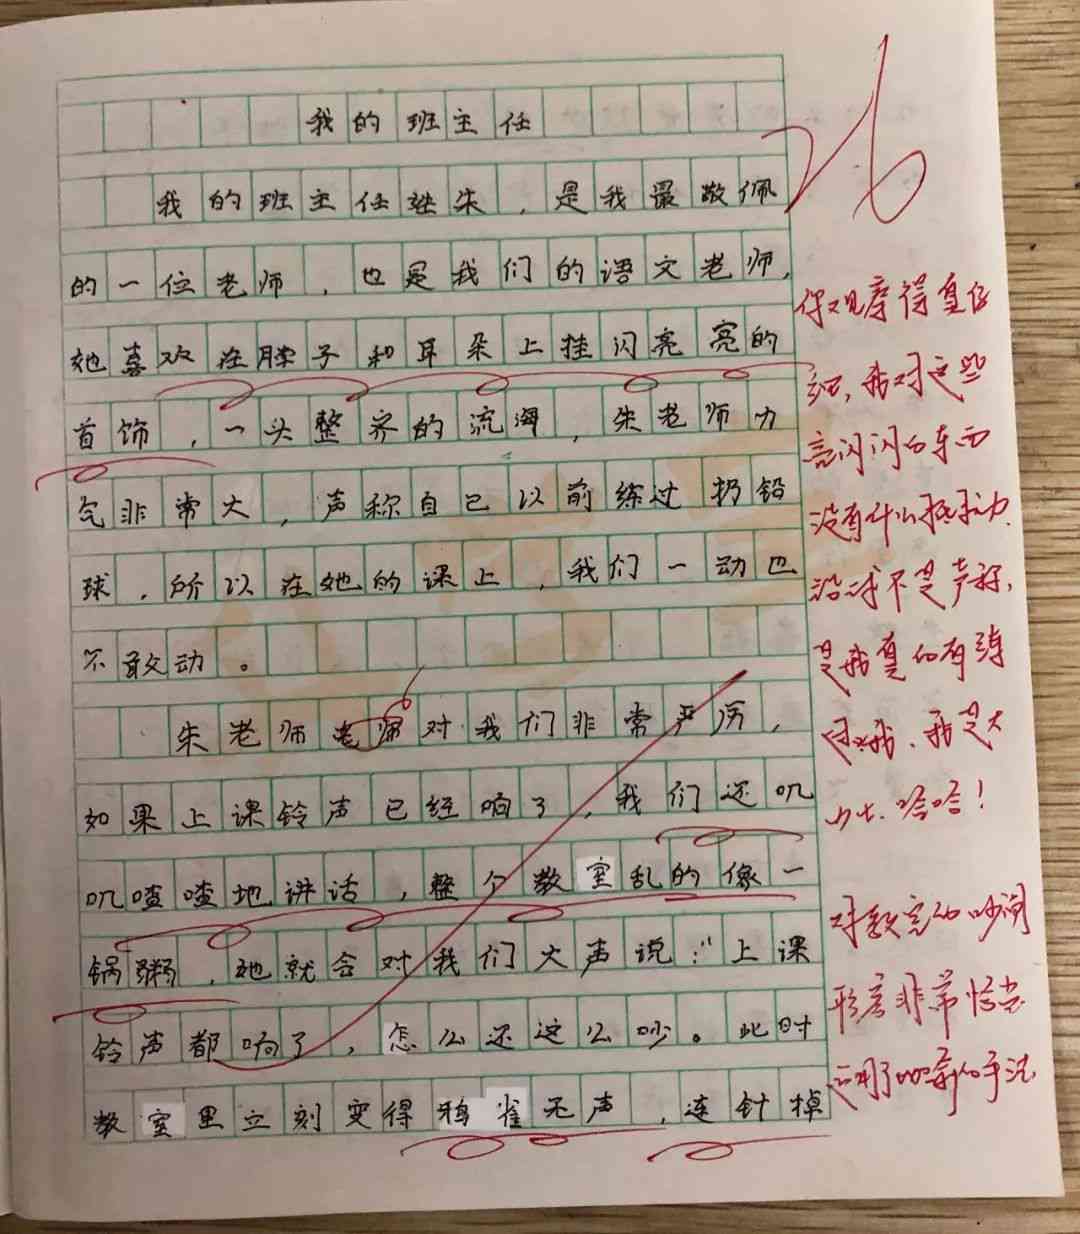 我的班主任
26
我的班主任姓朱，是我最敬佩
的一位老师，也是我们的语文老师，
她喜欢在脖子和耳朵上挂闪亮亮的
首饰，一头整齐的流海，朱老师力
气非常大，声称自己以前练过扔铅
球，所以在她的课上，我们一动也
不敢动。
朱老师老师对我们非常严厉，
如果上课铃声已经响了，我们还叽
叽喳喳地讲话，整个教室乱的像一
锅粥，她就会对我们大声说：“上课
铃声都响了，怎么还这么吵。此时
教室里立刻变得鸦雀无声，连针掉
你观察得真仔
细，我对这些
亮闪闪的东西
没有什么抵抗力.
铅球不是声称，
是我真的有练
过哦、我是大
力士.哈哈！
对教室的吵闹
形容非常恰当
运用了比喻的手法